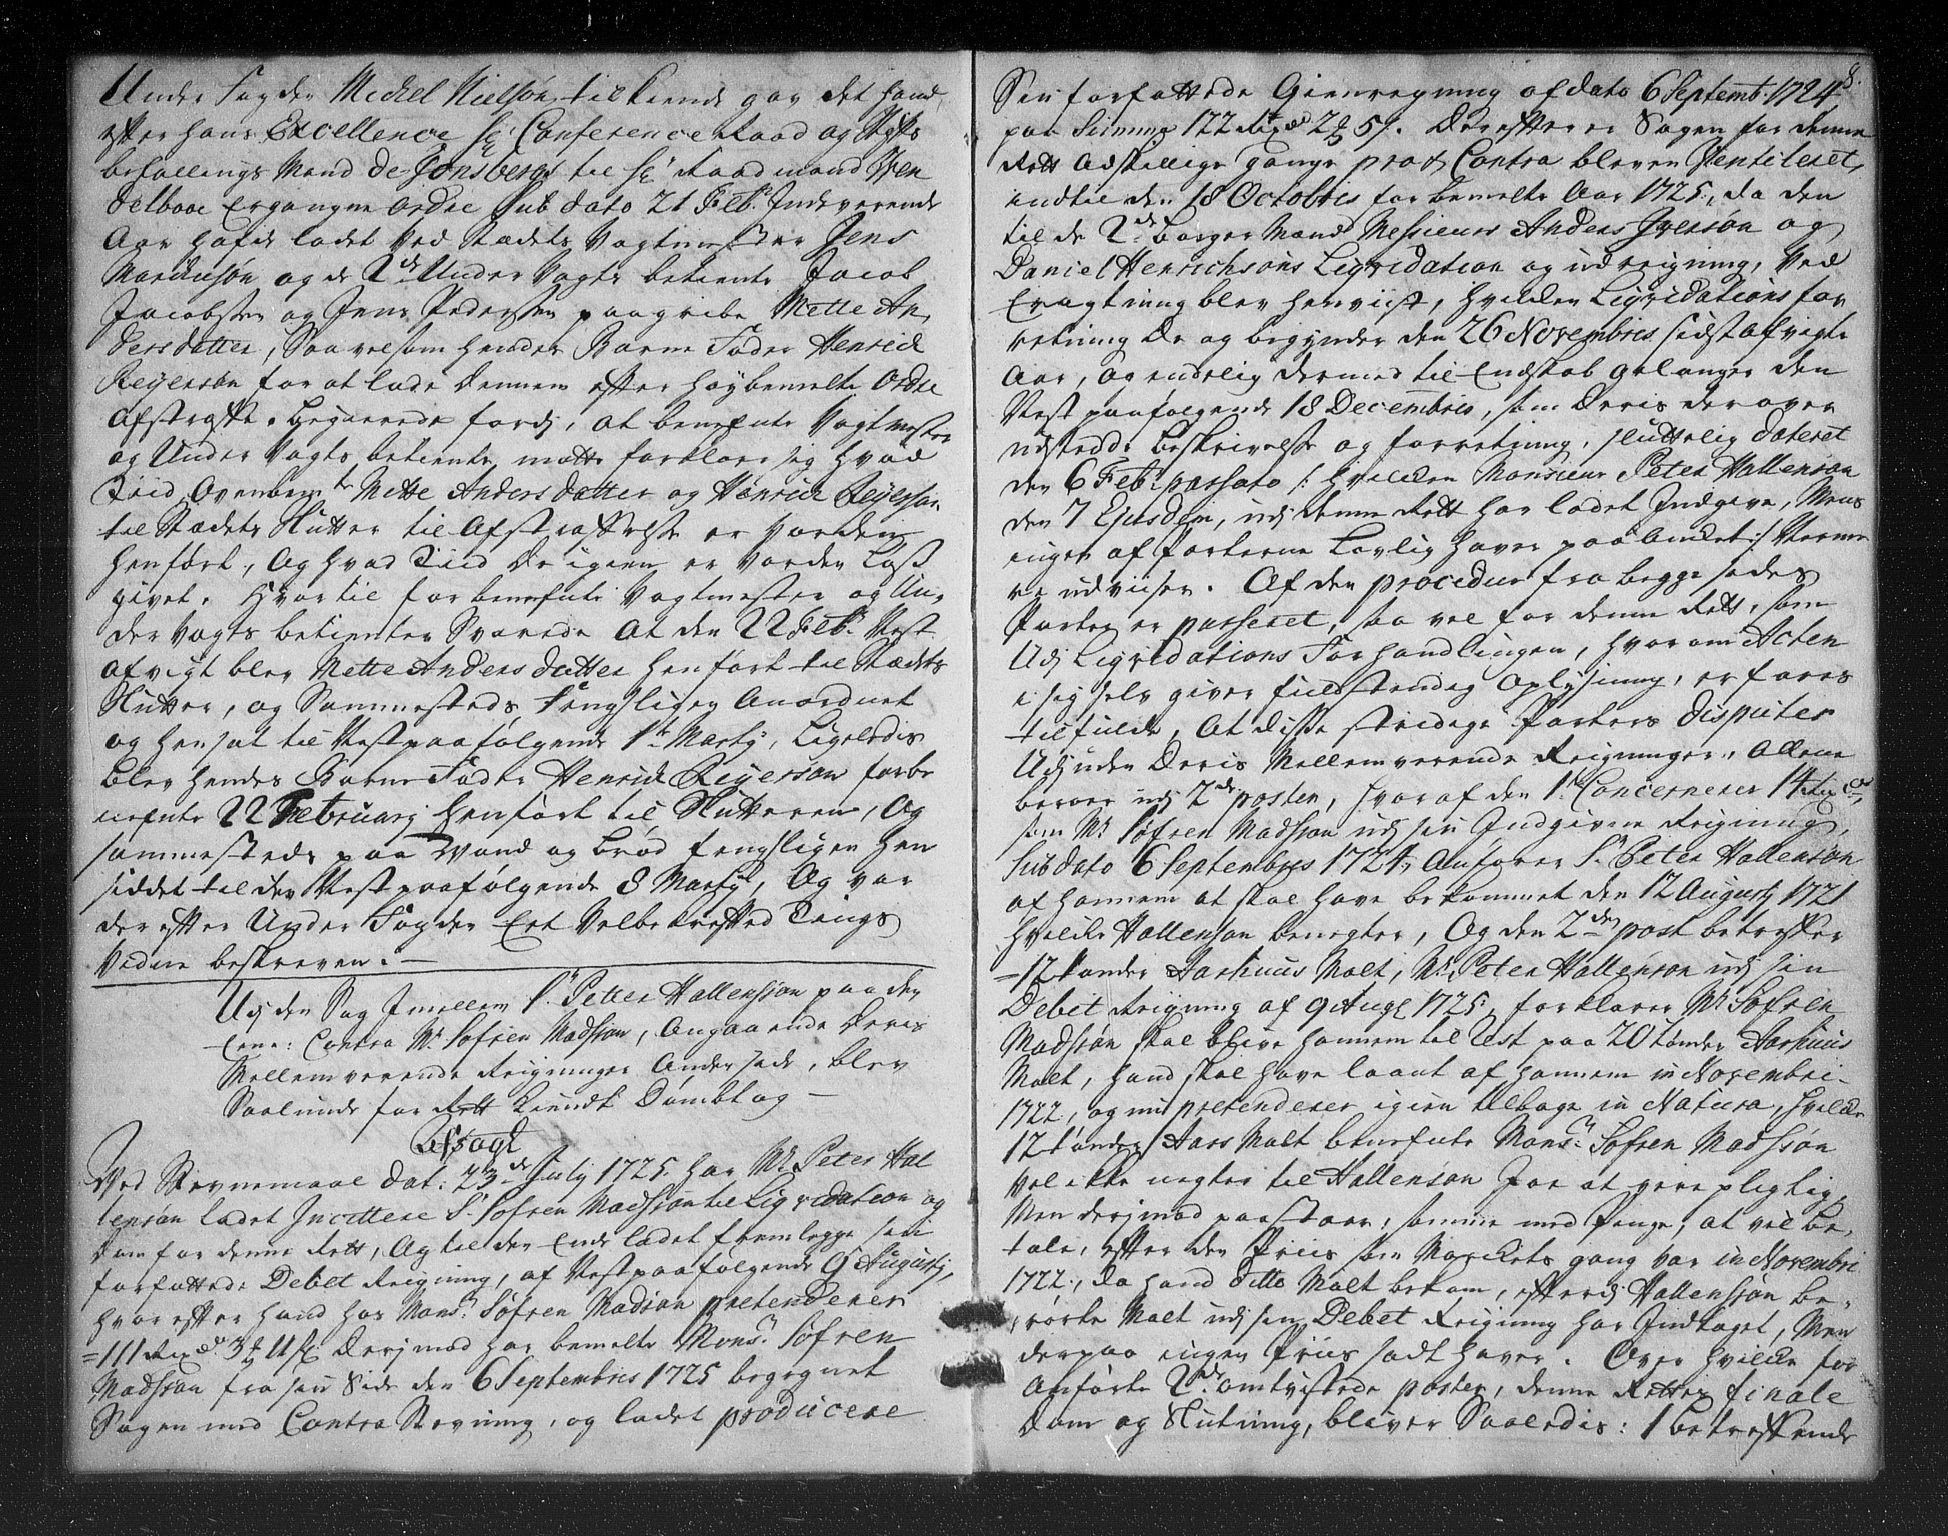 Under Fogden Michel Nielsøn tilkiende gav det hand
efter hans Excellence Hr Conference Raad og Stifts
befallings Mand de Tonsbergs til Hr Raadmand Wen
delboe Ergangne Ordre Sub dato 21 Feb. Indeverende
Aar hafde ladet Ved Stædets Vagtmester Jens
Marcusøn og de 2de Under Vagts betiente Jacob
Jacobsen og Jens Pedersen paagribe Mette An,
dersdatter, Saavelsom hendes Barne Fader Henrick
Reyersøn for at lade dennem efter høybemelte Ordre
Afstraffe. Begierede fordj, at benefnte Vagtmester
og Under Vagts betiente motte forklare sig hvad
Tiid Ovenbemte Mette Andersdatter og Henrick Reyersøn
til Stædets Slutter til Afstraffelse er Vorden
henført, Og hvad Tiid De igien er Vorden Løss
givet. Hvortil forbenefnte Vagtmester og Un,
der Vagts betienter Svarede At den 22 Feb. Nest
afvigt blev Mette Anders datter henført til Stædets
Slutter, og Sammesteds Fengsligen Anordnet
og hensat til Nestpaafølgende 1te Martij, Ligeledis
blev hendes Barne Fader Henrick Reyersøn forbe
nefnte 22 February henført til Slutteren, Og
sammesteds paa Vand og brød fengsligen hen
siddet til den Nestpaafølgende 8 Martij, Og var
derefter Under Fogden Eet Velbekreftet Tings
Vidne beskreven. —
Udj den Sag Imellem Sr. Petter Hallensøn paa den
Ene: Contra Mr. Søfren Madsøn, Angaaende Deris
Mellemverende Reigninger Anden side, blev
Saalunde for Rett kiendt Dømbt og —
Afsagt
Ved Stevnemaal Dat: 23de July 1725 har Mr. Peter Hal
lensøn ladet Incittere Sr. Søfren Madsøn til Liqvidation og
Dom for denne Rett, Og til den Ende ladet fremlegge sin
forfattede Debet Reigning, af Nestpaafølgende 9 Augustj,
hvorefter hand hos Monsr. Søfren Madsøn pretenderer
=111 Rixd. 3 11 s Derjmod har bemelte Monsr. Søfren
Madsøn fra sin Side den 6 Septembris 1725 begegnet
Sagen med Contra Stevning, og ladet producere
8.
Sin forfattede Gienregning af dato 6 Septemb. 1724
paa Summa 122 Rixd 2 5 s. Derefter er Sagen for denne
Rett Adskillige gange pro & Contra bleven Ventileret,
indtil den 18 Octobris forbemelte Aar 1725, da den
til de 2de borger Mænd Messieurs Anders Iversøn og
Daniel Henrichsøns Liqvidation og udreigning, Ved
Eragtning blev henviist, hvilken Liqvidations for
retning De og begynder den 26 Novembris sidst afvigte
Aar, og endelig dermed til Endskab gelanger den
Nest paafølgende 18 Decembris, som deris derover
udstedde beskrivelse og forretning, sluttelig dateret
den 6 Feb. passato /: hvilken Monsieur Peter Hallensøn
den 7 Ejusdem, udj denne Rett har ladet Indgive, Mens
ingen af Parterne Lovlig haver paa Ancket :/ Nerme
re udviiser. Af den procedur fra begge sides
Parter er passeret, saa vel for denne Rett, som
Udj Liqvidations Forhandlingen, hvorom Acten
i sig self giver fuldstendig Oplysning, erfares
tilfulde, At disse stridige Parters Disputer
Udj uden Deris Mellemverende Reigninger, Allene
beroer udj 2de poster, hvoraf den 1te Concernerer 14 Rixd,
som Mr Søfren Madsøn udj sin Indgivne Reigning,
Sub dato 6 Septembris 1724, Anfører Sr. Peter Hallensøn
af hannem at skal have bekommet den 12 Augustj 1721
hvilke Hallensøn benegter, Og den 2den post betreffer
=12 tønder Aarhuus Malt, Mr. Peter Hallensøn udj sin
Debet Reigning af 9 Aug. 1725, forklarer Mr Søfren
Madsøn skal blive hannem til Rest paa 20 tønder Aarhuus
Malt, hand skal have laant af hannem in Novembri.
1722, og nu pretenderer igien tilbage in Natura, hvilke
12 tønder Aars Malt benefnte Monsr. Søfren Madsøn
vel ikke negter til Hallensøn Jo at være pligtig,
Men derjmod paastaar, samme med Penge, at vil be,
tale, efter den Priis som Marckets gang var in Novembri
1722, da hand ditto Malt bekom, efterdj Hallensøn be,
rørte Malt udj sin Debet Reigning har Indtaget, Men
derpaa ingen Priis sadt haver. Over hvilke for
Anførte 2de omtvistede poster, denne Rettes finale
Dom og Slutning, bliver Saaledis: 1 betreffende